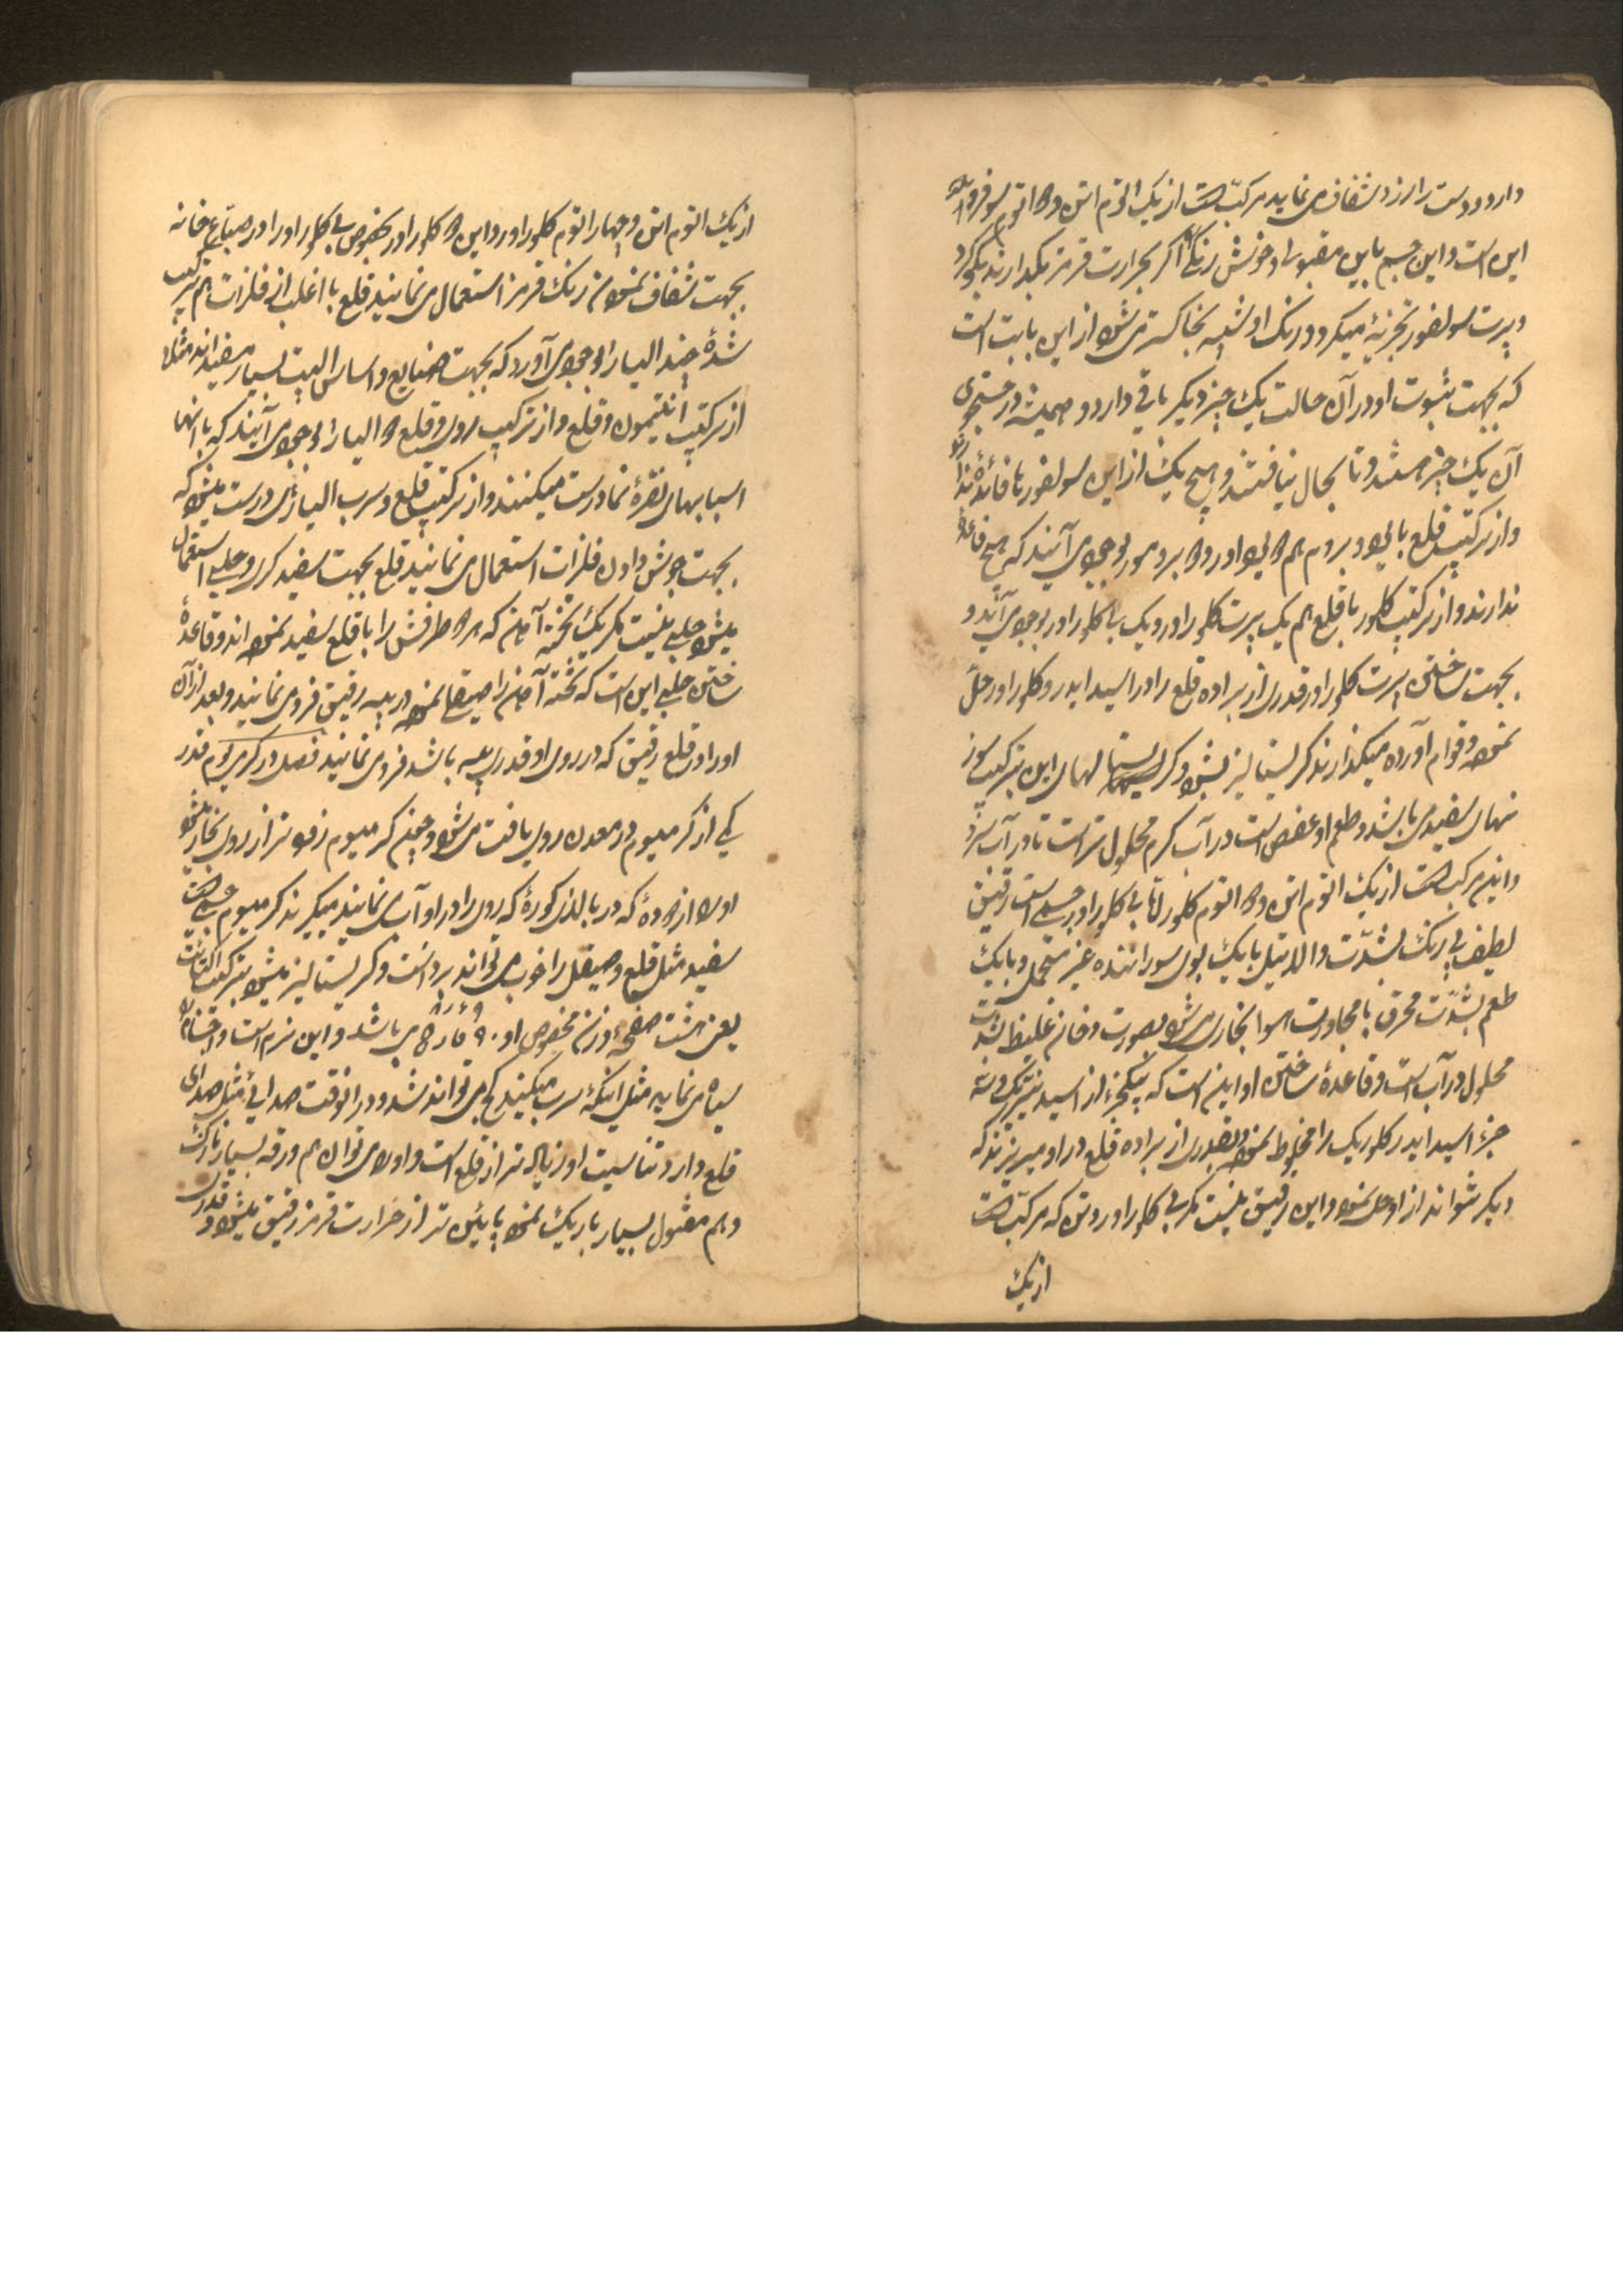 دارد و دست را زرد شفاف می نماید مرکب است از یک اتوم اتن و دو اتوم سولفور و
این است و این جسم باین مقبولی و خوش رنگی اگر بحرارت قرمز بگدارند بگوگرد
و پرت سولفور تجزیه میگردد و رنگ او شبیه بخاکستر می شود از این بابت است
که بجهت ثبوت او در آن حالت یک چیز دیگر باقی دارد و همیشه در جستجوی
آن یک چیز هستند و تا بحال نیافتند و هیچ یک از این سولفورها فائده ندارد
و از ترکیب قلع با یود و بروم هم دو یو اور و دو برومور بوجود می آیند که هیچ فائده
ندارند و از ترکیب کلور با قلع هم یک پرت کلور اور و یک بی کلور اور بوجود می آیند و
بجهت ساختن پرت کلور اور قدری از براده قلع را در اسید ایدروکلور اور حل
نموده و قوام آورده میگذارند کریستالیز بشود کریستالهای این ترکیب سوز
نهای سفید می باشد و طعم او عفص است در آب گرم محلول تر است تا در آب سرد
و این مرکب است از یک اتوم اتن و دو اتوم کلور اما بی کلور اور جسمی است رقیق
لطیف بی رنگ بشدت و الاتیل با یک بوی سوراننده غیر متحمل و با یک
طعم بشدت محرق با مجاورت هوا بخاری می شود بصورت دخان غلیظ بشدت
محلول در آب است و قاعده ساختن او این است که یکجزء از اسید نیتریک و سه
جزء اسید ایدروکلوریک را مخلوط نموده و بقدری از براده قلع در او میریزند که
دیگر نتواند از او حل نمود و این رقیق نیست مگر بی کلور اور دتن که مرکب است
از یک
از یک اتوم اتن و چهار اتوم کلور اور و این دو کلور اور بخصوص بی کلور اور در صباغ خانه
بجهت شفاف نمودن رنگ قرمز استعمال می نمایند قلع با اغلب از فلزات هم ترکیب
شده چند الیاژ بوجود می آورد که بجهت صنایع و اساس البیت بسیار مفید اند مثلا
از ترکیب انتیمون و قلع و از ترکیب روی و قلع دو الیاژ بوجود می آیند که با آنها
اسبابهای نقره نما درست میکنند و از ترکیب قلع و سرب الیاژی درست میشود که
بجهت جوش دادن فلزات استعمال می نمایند قلع بجهت سفید کردن و حلبی استعمال
میشود حلبی نیست مگر یک تخته آهن که هر دو طرفش را با قلع سفید نموده اند و قاعده
ساختن حلبی این است که تخته آهن را صیقلی نموده در پیه رقیق فرو می نمایند و بعد از آن
او را در قلع رقیق که در روی او قدری پیه باشد فرو می نمایند فصل در کدمیوم قدر
کمی از کدمیوم در معدن روی یافت می شود و چون کدمیوم زودتر از روی بخار میشود
او را از دوده که در بالای کوره که روی را در او آب می نمایند میگیرند کدمیوم جسمی است
سفید مثل قلع و صیقل را خوب می تواند برداشت و کریستالیز میشود بترکیب اکتائت
یعنی هشت صفحه وزن مخصوص او ۶۹ر۸ می باشد و این نرم است و
سیاه می نماید مثل اینکه سرب میکند کج می تواند شد و در آنوقت صدائی مثل صدای
قلع دارد تناسیت او زیاده تر از قلع است و او را می توان هم ورقه بسیار نازک
و هم مفتول بسیار باریک نمود پایین تر از حرارت قرمز رقیق میشود و قدری